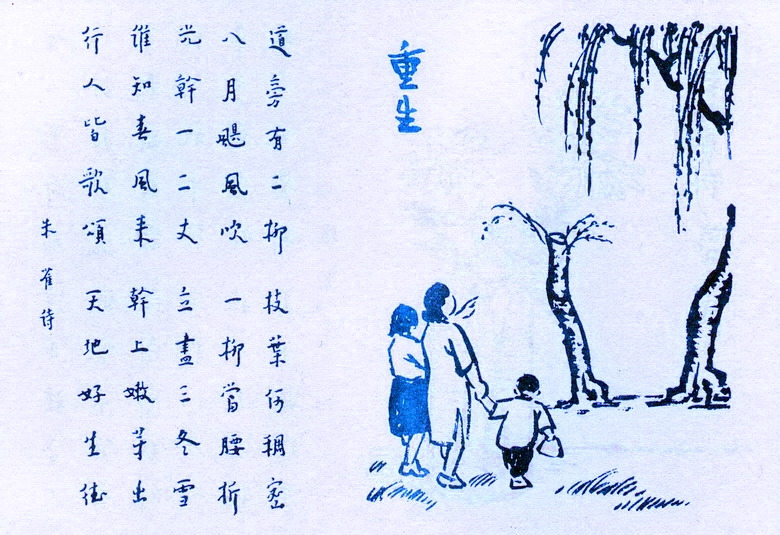 重生
道旁有二柳 枝葉何稠密
八月颶風吹 一柳當腰折
光幹一二丈 立盡三冬雪
誰知春風來 幹上嫩芽出
行人皆歌頌 天地好生德
朱雀诗